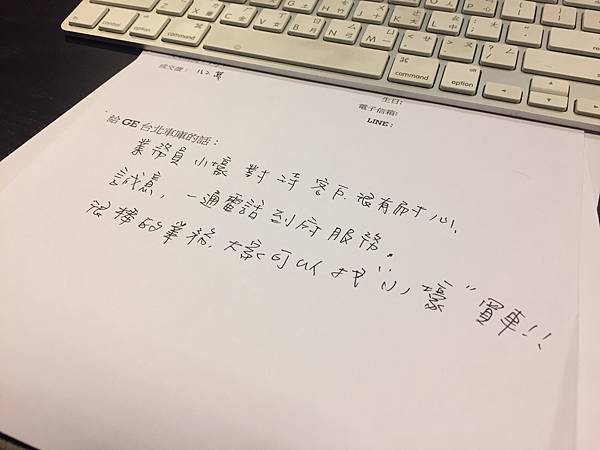 成交價：
生日:
電子信箱:
LINE:
給 GE 台北車庫的話：
業務員 小壕 對待 客戶 很有耐心,
誠意, 一通電話 到府 服務.
很棒的業務. 大家可以 找 "小壕" 買車!!
command
option
command
option